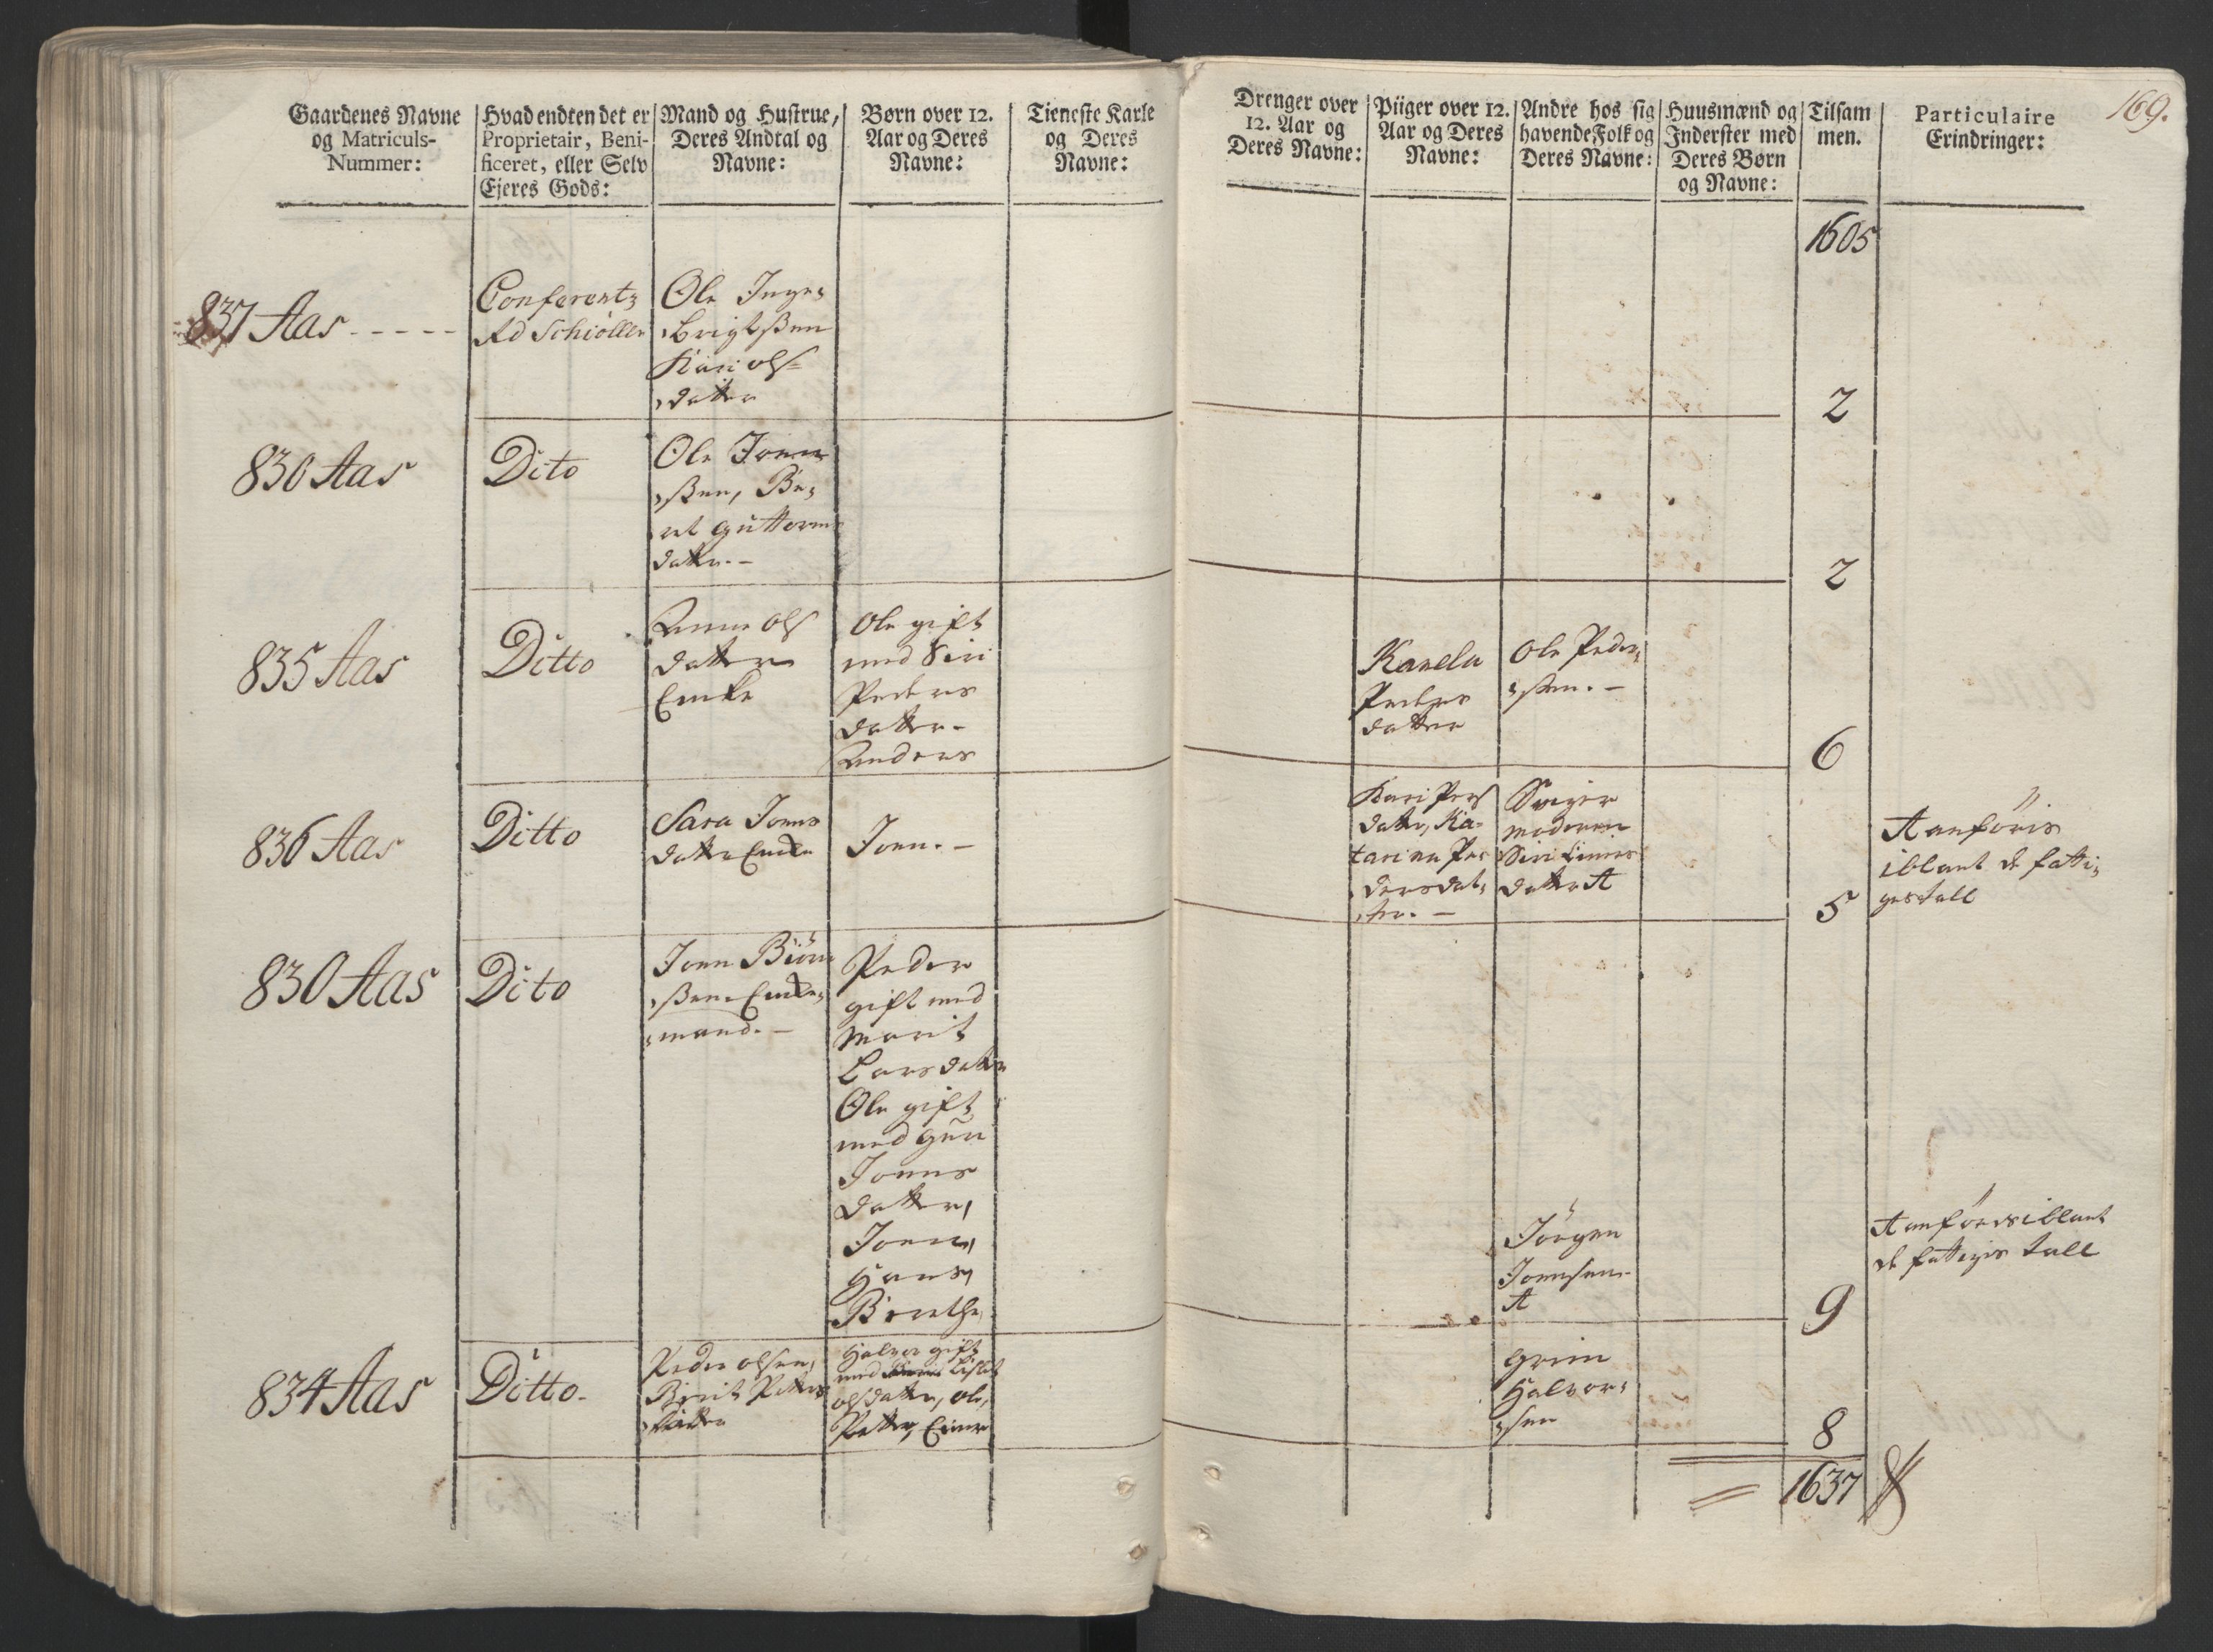 Gaardenes Navne
og Matriculs-
Nummer:
Hvad endten det er
Proprietair, Beni-
ficeret, eller Selv
Ejeres Gods:
Mand og Hustrue,
Deres Andtal og
Navne:
Børn over 12.
Aar og Deres
Navne:
Tieneste Karle
og Deres
Navne:
Drenger over
12. Aar og
Deres Navne:
Piiger over 12.
Aar og Deres
Navne:
Andre hos sig
havende Folk og
Deres Navne:
Huusmænd og
Inderster med
Deres Børn
og Navne:
Tilsam
men.
Particulaire
Erindringer:
169.
1605
837 Aas
Conferentz
Rd Schiöller
Ole Inge-
brigtßen
Kari Ols-
datter
2
830 Aas
Dito
Ole Joen
ßen, Be-
ret Guttorm
datter.-
2
835 Aas
Ditto
Anne Ols
datter
Encke
Ole gift
med Siri
Peders
datter-
Anders
Karele
Peders
datter
Ole Peder-
ßen.-
6
836 Aas
Ditto
Sara Joens
datter Encke
Joen.-
Kari Pers
datter, Ka-
tarina Pe-
dersdat-
ter.-
Sviger
moderen
Siri
datter A
5
A anföris
iblant de fatti-
ges tall
830 Aas
Dito
Joen Biörn
ßen Encke-
mand.-
Peder
gift med
Marit
Larsdatter
Ole gift
med Guri
Joens
datter,
Joen,
Hans,
Berethe
Jörgen
Joensen
A
9
A anföres iblant
de fattiges tall
834 Aas
Ditto-
Peder Olsen,
Berit Peters
datter
Halvor gift
med Lisbet
Olsdatter, Ole,
Petter, Einer
Grim
Halvor-
sen
8
1637